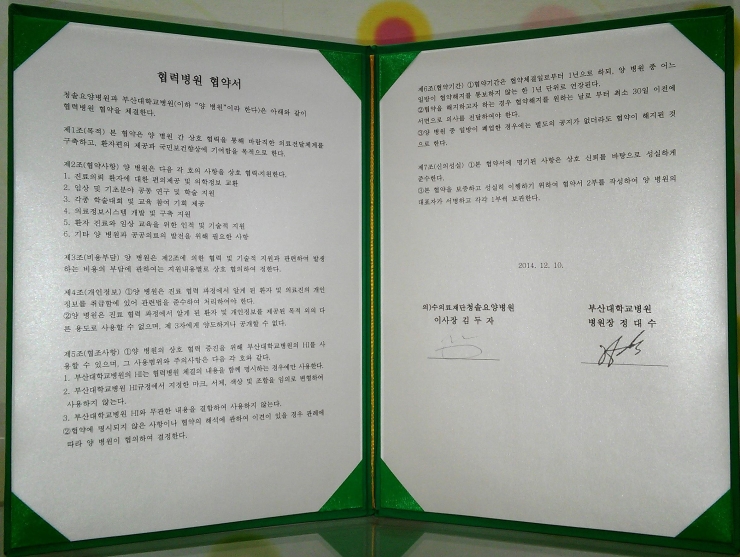 협력병원 협약서
청솔요양병원과 부산대학교병원(이하 "양 병원"이라 한다)은 아래와 같이
협력병원 협약을 체결한다.
제1조(목적) 본 협약은 양 병원 간 상호 협력을 통해 바람직한 의료전달체계를
구축하고, 환자편의 제공과 국민보건향상에 기여함을 목적으로 한다.
제2조(협약사항) 양 병원은 다음 각 호의 사항을 상호 협력·지원한다.
1. 진료의뢰 환자에 대한 편의제공 및 의학정보 교환
2. 임상 및 기초분야 공동 연구 및 학술 지원
3. 각종 학술대회 및 교육 참여 기회 제공
4. 의료정보시스템 개발 및 구축 지원
5. 환자 진료와 임상 교육을 위한 인적 및 기술적 지원
6. 기타 양 병원과 공공의료의 발전을 위해 필요한 사항
제3조(비용부담) 양 병원은 제2조에 의한 협력 및 기술적 지원과 관련하여 발생
하는 비용의 부담에 관하여는 지원내용별로 상호 협의하여 정한다.
제4조(개인정보) ①양 병원은 진료 협력 과정에서 알게 된 환자 및 의료진의 개인
정보를 취급함에 있어 관련법을 준수하여 처리하여야 한다.
②양 병원은 진료 협력 과정에서 알게 된 환자 및 개인정보를 제공된 목적 외의 다
른 용도로 사용할 수 없으며, 제 3자에게 양도하거나 공개할 수 없다.
제5조(협조사항) ①양 병원의 상호 협력 증진을 위해 부산대학교병원의 HI를 사
용할 수 있으며, 그 사용범위와 주의사항은 다음 각 호와 같다.
1. 부산대학교병원의 HI는 협력병원 체결의 내용을 함께 명시하는 경우에만 사용한다.
2. 부산대학교병원 HI규정에서 지정한 마크, 서체, 색상 및 조합을 임의로 변형하여
사용하지 않는다.
3. 부산대학교병원 HI와 무관한 내용을 결합하여 사용하지 않는다.
②협약에 명시되지 않은 사항이나 협약의 해석에 관하여 이견이 있을 경우 관례에
따라 양 병원이 협의하여 결정한다.
제6조(협약기간) ①협약기간은 협약체결일로부터 1년으로 하되, 양 병원 중 어느
일방이 협약해지를 통보하지 않는 한 1년 단위로 연장된다.
②협약을 해지하고자 하는 경우 협약해지를 원하는 날로 부터 최소 30일 이전에
서면으로 의사를 전달하여야 한다.
③양 병원 중 일방이 폐업한 경우에는 별도의 공지가 없더라도 협약이 해지된 것
으로 본다.
제7조(신의성실) ①본 협약서에 명기된 사항은 상호 신뢰를 바탕으로 성실하게
준수한다.
①본 협약을 보증하고 성실히 이행하기 위하여 협약서 2부를 작성하여 양 병원의
대표자가 서명하고 각각 1부씩 보관한다.
2014. 12. 10.
의)수의료재단청솔요양병원
이사장 김 두 자
부산대학교병원
병원장 정 대 수